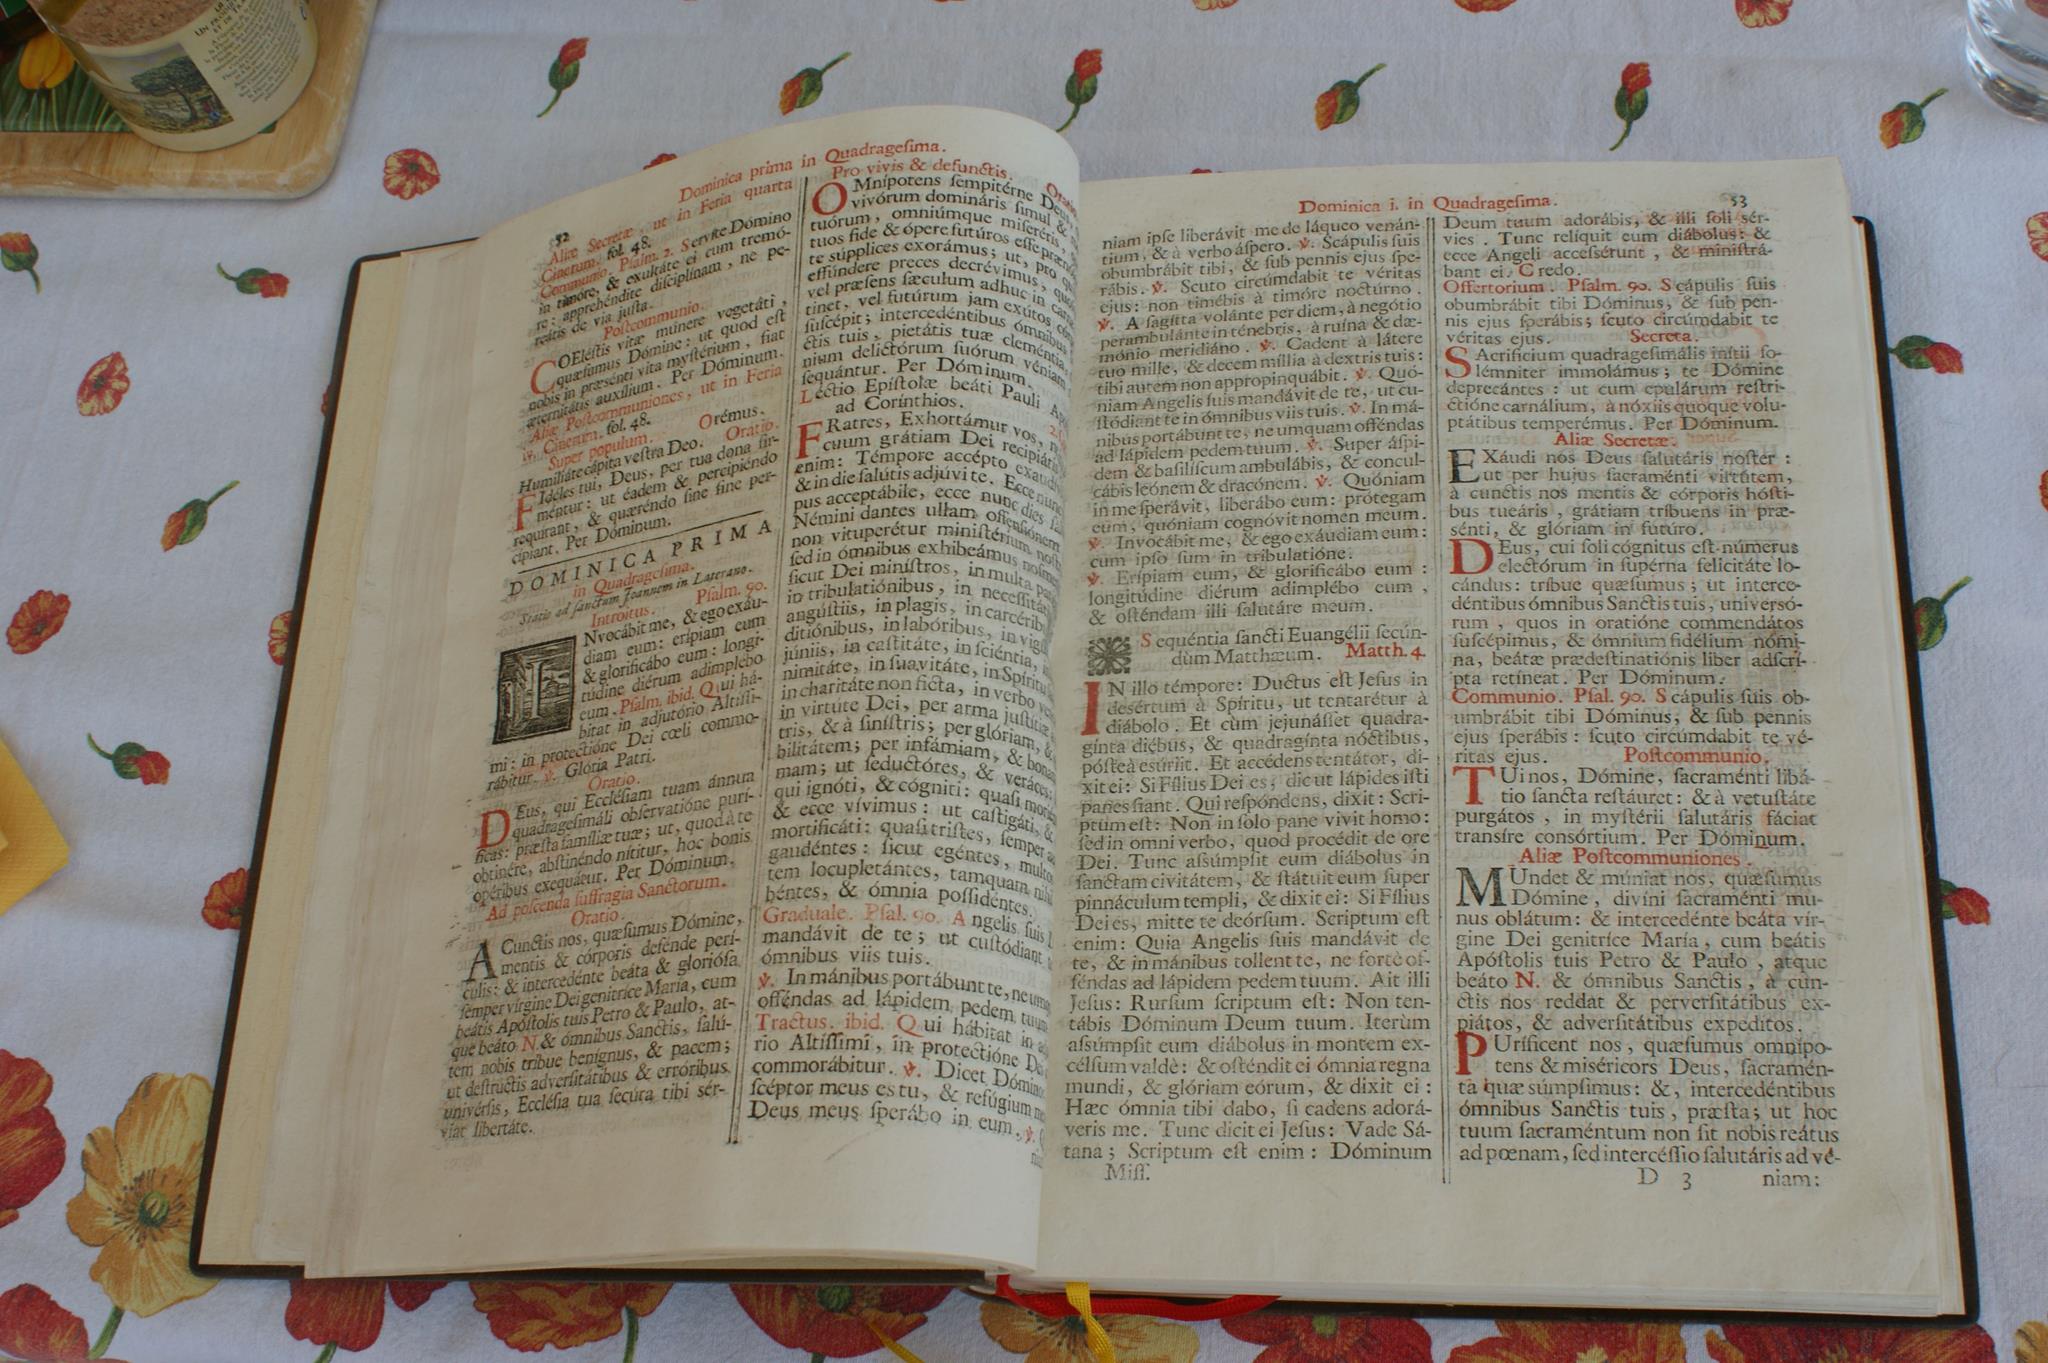 Dominica prima in Quadragesima.
52
Aliæ Secretæ, ut in Feria quarta
Cinerum. fol. 48.
Communio. Psalm. 2. Servite Dómino
in timóre, & exultáte ei cum tremó-
re: apprehéndite disciplínam, ne pe-
reátis de via justa.
Postcommunio.
COEléstis vitæ múnere vegetáti,
quæsumus Dómine: ut quod est
nobis in præsénti vita mystérium, fiat
æternitátis auxílium. Per Dóminum.
Aliæ Postcommuniones, ut in Feria
iv. Cinerum. fol. 48.
Super populum. Orémus.
Humiliáte cápita vestra Deo. Oratio.
FIdéles tui, Deus, per tua dona fir-
méntur: ut éadem & percipiéndo
requírant, & quæréndo sine fine per-
cípiant. Per Dóminum.
DOMINICA PRIMA
in Quadragesima.
Statio ad sanctum Joannem in Laterano.
Introitus. Psalm. 90.
INvocábit me, & ego exáu-
diam eum: erípiam eum
& glorificábo eum: longi-
túdine diérum adimplébo
eum. Psalm. ibid. Qui há-
bitat in adjutório Altíssi-
mi: in protectióne Dei cœli commo-
rábitur. ℣. Glória Patri.
Oratio.
DEus, qui Ecclésiam tuam ánnua
quadragesimáli observatióne purí-
ficas: præsta famíliæ tuæ; ut, quod à te
obtinére, abstinéndo nítitur, hoc bonis
opéribus exequátur. Per Dóminum.
Ad poscenda suffragia Sanctorum.
Oratio.
A Cunctis nos, quæsumus Dómine,
mentis & córporis defénde perí-
culis: & intercedénte beáta & gloriósa
semper vírgine Dei genitríce María, cum
beátis Apóstolis tuis Petro & Paulo, at-
que beáto N. & ómnibus Sanctis, salú-
tem nobis tríbue benígnus, & pacem;
ut destrúctis adversitátibus & erróribus
univérsis, Ecclésia tua secúra tibi sér-
viat libertáte.
Pro vivis & defunctis.
OMnípotens sempitérne Deus,
vivórum domináris simul &
tuórum, omniúmque miseréris,
tuos fide & ópere futúros esse
te súpplices exorámus; ut, pro
effúndere preces decrévimus,
vel præsens sæculum adhuc in carne
tinet, vel futúrum jam exútos
suscépit; intercedéntibus ómnibus
ctis tuis, pietátis tuæ cleméntia,
nium delictórum suórum véniam
sequántur. Per Dóminum.
Léctio Epístolæ beáti Pauli
ad Corínthios.
FRatres, Exhortámur vos,
cuum grátiam Dei recipiátis
enim: Témpore accépto
& in die salútis adjúvi te. Ecce nunc
pus acceptábile, ecce nunc dies
Némini dantes ullam offensiónem
non vituperétur ministérium
sed in ómnibus exhibeámus
sicut Dei minístros, in multa
in tribulatiónibus, in
angústiis, in plagis, in
ditiónibus, in labóribus, in
júniis, in castitáte, in sciéntia,
nimitáte, in suavitáte, in Spíritu
in charitáte non ficta, in verbo
in virtúte Dei, per arma justítiæ
tris, & à sinístris; per glóriam, &
bilitátem; per infámiam, &
mam; ut seductóres, & veráces:
qui ignóti, & cógniti: quasi
& ecce vívimus: ut castigáti, &
mortificáti: quasi tristes, semper
gaudéntes: sicut egéntes,
tem locupletántes, tamquam
béntes, & ómnia possidéntes.
Graduale. Psal. 90. Angelis suis
mandávit de te; ut custódiant
ómnibus viis tuis.
℣. In mánibus portábunt te,
offéndas ad lápidem pedem
Tractus. ibid. Qui hábitat in
rio Altíssimi, in protectióne
commorábitur. ℣. Dicet
scéptor meus es tu, & refúgium
Deus meus sperábo in eum. ℣.
Dominica i. in Quadragesima.
53
niam ipse liberávit me de láqueo venán-
tium, & à verbo áspero. ℣. Scápulis suis
obumbrábit tibi, & sub pennis ejus spe-
rábis. ℣. Scuto circúmdabit te véritas
ejus: non timébis à timóre noctúrno.
℣. A sagítta volánte per diem, à negótio
perambulánte in ténebris, à ruína & dæ-
mónio meridiáno. ℣. Cadent à látere
tuo mille, & decem míllia à dextris tuis:
tibi autem non appropinquábit. ℣. Quó-
niam Angelis suis mandávit de te, ut cu-
stódiant te in ómnibus viis tuis. ℣. In má-
nibus portábunt te, ne umquam offéndas
ad lápidem pedem tuum. ℣. Super áspi-
dem & basilíscum ambulábis, & concul-
cábis leónem & dracónem. ℣. Quóniam
in me sperávit, liberábo eum: prótegam
eum, quóniam cognóvit nomen meum.
℣. Invocábit me, & ego exáudiam eum:
cum ipso sum in tribulatióne.
℣. Erípiam eum, & glorificábo eum:
longitúdine diérum adimplébo eum,
& osténdam illi salutáre meum.
Sequéntia sancti Euangélii secún-
dùm Matthæum. Matth. 4.
IN illo témpore: Ductus est Jesus in
desértum à Spíritu, ut tentarétur à
diábolo. Et cùm jejunásset quadra-
gínta diébus, & quadragínta nóctibus,
pósteà esúriit. Et accédens tentátor, di-
xit ei: Si Fílius Dei es, dic ut lápides isti
panes fiant. Qui respóndens, dixit: Scri-
ptum est: Non in solo pane vivit homo:
sed in omni verbo, quod procédit de ore
Dei. Tunc assúmpsit eum diábolus in
sanctam civitátem, & státuit eum super
pinnáculum templi, & dixit ei: Si Fílius
Dei es, mitte te deórsum. Scriptum est
enim: Quia Angelis suis mandávit de
te, & in mánibus tollent te, ne forte of-
féndas ad lápidem pedem tuum. Ait illi
Jesus: Rursum scriptum est: Non ten-
tábis Dóminum Deum tuum. Iterùm
assúmpsit eum diábolus in montem ex-
célsum valdè: & osténdit ei ómnia regna
mundi, & glóriam eórum, & dixit ei:
Hæc ómnia tibi dabo, si cadens adorá-
veris me. Tunc dicit ei Jesus: Vade Sá-
tana; Scriptum est enim: Dóminum
Miss.
Deum tuum adorábis, & illi soli sér-
vies. Tunc relíquit eum diábolus: &
ecce Angeli accessérunt, & ministrá-
bant ei. Credo.
Offertorium. Psalm. 90. Scápulis suis
obumbrábit tibi Dóminus, & sub pen-
nis ejus sperábis; scuto circúmdabit te
véritas ejus. Secreta.
SAcrifícium quadragesimális inítii so-
lémniter immolámus; te Dómine
deprecántes: ut cum epulárum restri-
ctióne carnálium, à nóxiis quoque volu-
ptátibus temperémus. Per Dóminum.
Aliæ Secretæ.
EXáudi nos Deus salutáris noster:
ut per hujus sacraménti virtútem,
à cunctis nos mentis & córporis hósti-
bus tueáris, grátiam tríbuens in præ-
sénti, & glóriam in futúro.
DEus, cui soli cógnitus est númerus
electórum in supérna felicitáte lo-
cándus: tríbue quæsumus; ut interce-
déntibus ómnibus Sanctis tuis, universó-
rum, quos in oratióne commendátos
suscépimus, & ómnium fidélium nómi-
na, beátæ prædestinatiónis liber adscrí-
pta retíneat. Per Dóminum.
Communio. Psal. 90. Scápulis suis ob-
umbrábit tibi Dóminus, & sub pennis
ejus sperábis: scuto circúmdabit te vé-
ritas ejus. Postcommunio.
TUi nos, Dómine, sacraménti libá-
tio sancta restáuret: & à vetustáte
purgátos, in mystérii salutáris fáciat
transíre consórtium. Per Dóminum.
Aliæ Postcommuniones.
MUndet & múniat nos, quæsumus
Dómine, divíni sacraménti mu-
nus oblátum: & intercedénte beáta vír-
gine Dei genitríce María, cum beátis
Apóstolis tuis Petro & Paulo, atque
beáto N. & ómnibus Sanctis, à cun-
ctis nos reddat & perversitátibus ex-
piátos, & adversitátibus expedítos.
PUríficent nos, quæsumus omnípo-
tens & miséricors Deus, sacramén-
ta quæ súmpsimus: &, intercedéntibus
ómnibus Sanctis tuis, præsta; ut hoc
tuum sacraméntum non sit nobis reátus
ad pœnam, sed intercéssio salutáris ad vé-
D 3 niam: